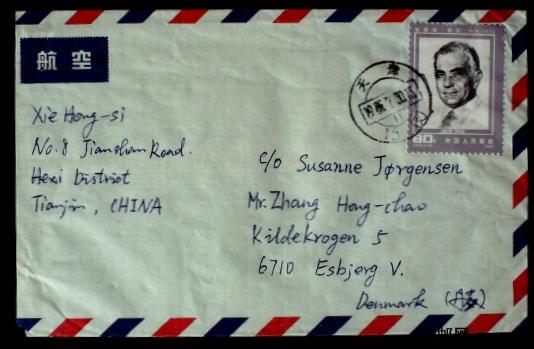 航空
Xie Hong-si
No.8 Jianshan Road.
Hexi District
Tianjin, CHINA
天津
中国人民邮政
c/o Susanne Jørgensen
Mr. Zhang Hong-chao
Kildekrogen 5
6710 Esbjerg V.
Denmark